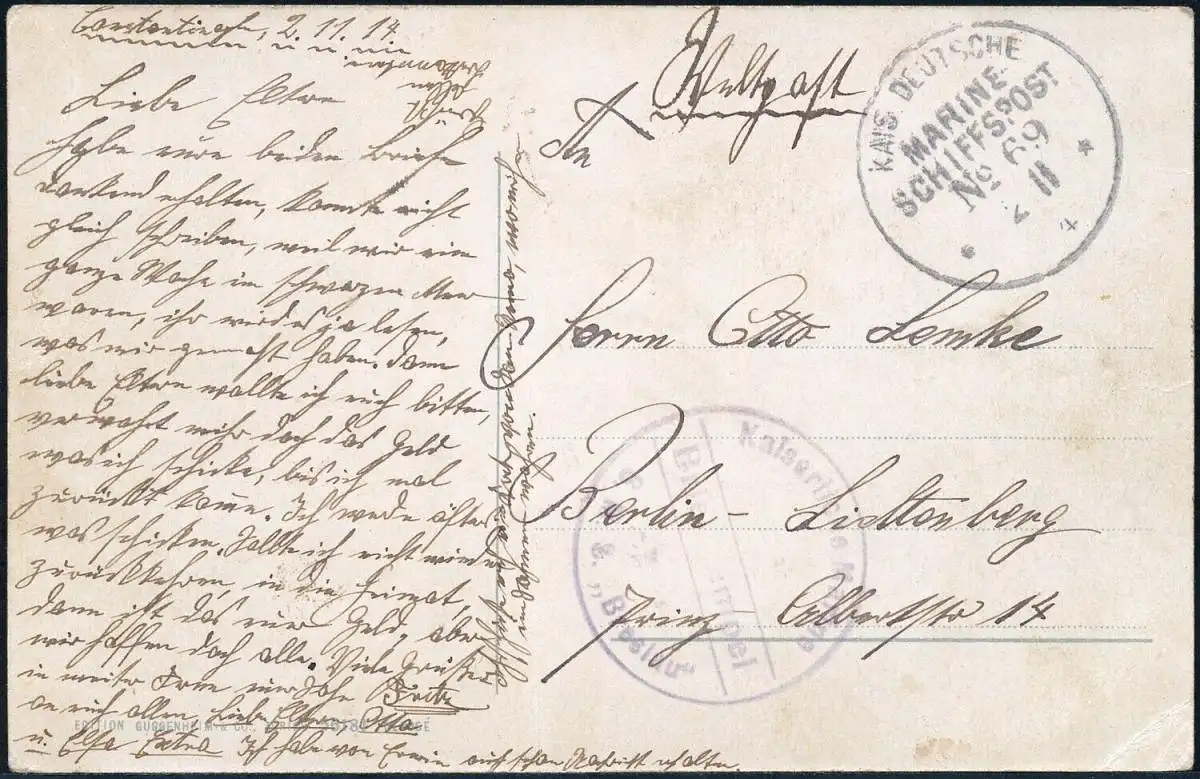 Constantinopel, 2. 11. 14.
Liebe Eltern
Habe eure beiden Briefe
dankend erhalten, konnte nicht
gleich schreiben, weil wir ein
ganze Woche im schwarzen Meer
waren, ihr werdet es ja lesen,
was wir gemacht haben. Dann
liebe Eltern wollte ich euch bitten,
verwahrt mihr doch das Geld
was ich schicke, bis ich mal
zurückt komme. Ich werde öfters
was schicken. Sollte ich nicht wieder
zurückkehren, in die Heimat,
dann ist das euer Geld, aber
wir hoffen doch alle. Viele Grüße
in weiter Ferne euer Sohn Fritz
an euch allen, Liebe Eltern Otto
u. Elsa Extra Ich habe von Erwin auch schon Nachricht erhalten.
EDITION GUGGENHEIM & CO.,
Weltpost
An
Herrn Otto Lemke
Berlin- Lichtenberg
Prinz Albertstr 14
KAIS. DEUTSCHE
MARINE-
SCHIFFSPOST
No 69
2 11
Kaiserliche Marine
S. M. S. „Breslau"